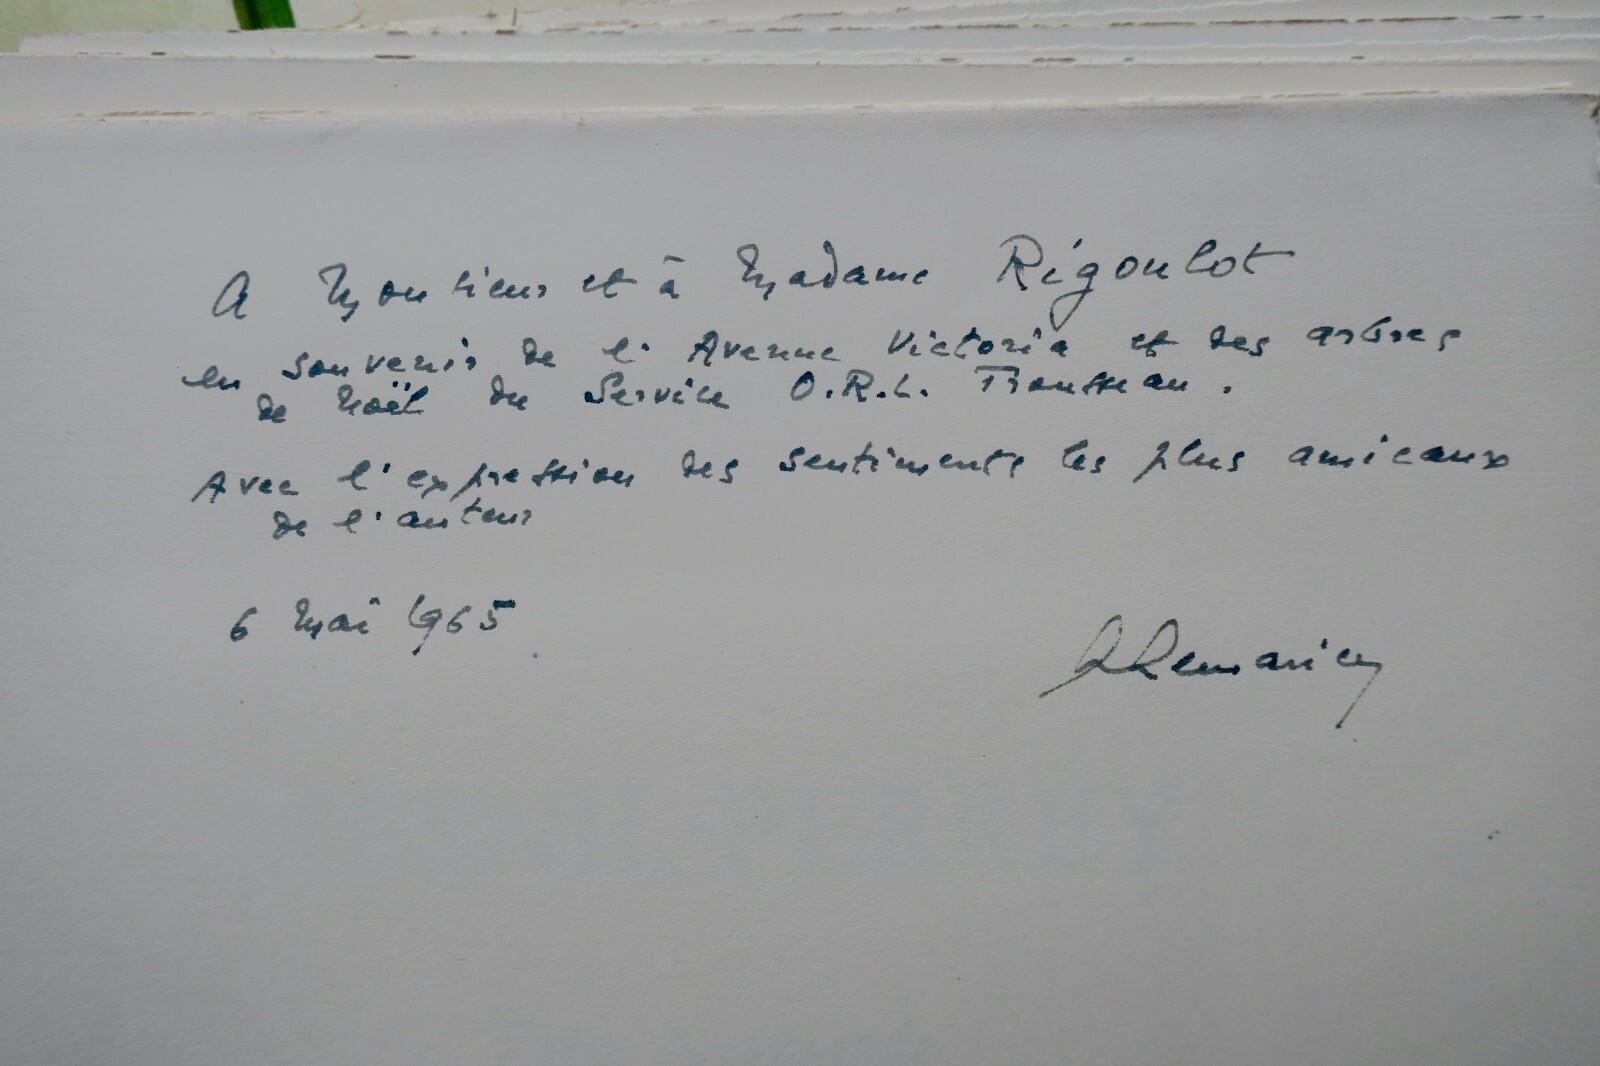 A Monsieur et à Madame Rigoulot
en souvenir de l'Avenue Victoria et des arbres
de Noël du Service O.R.L. Trousseau.
Avec l'expression des sentiments les plus amicaux
de l'auteur
6 Mai 1965